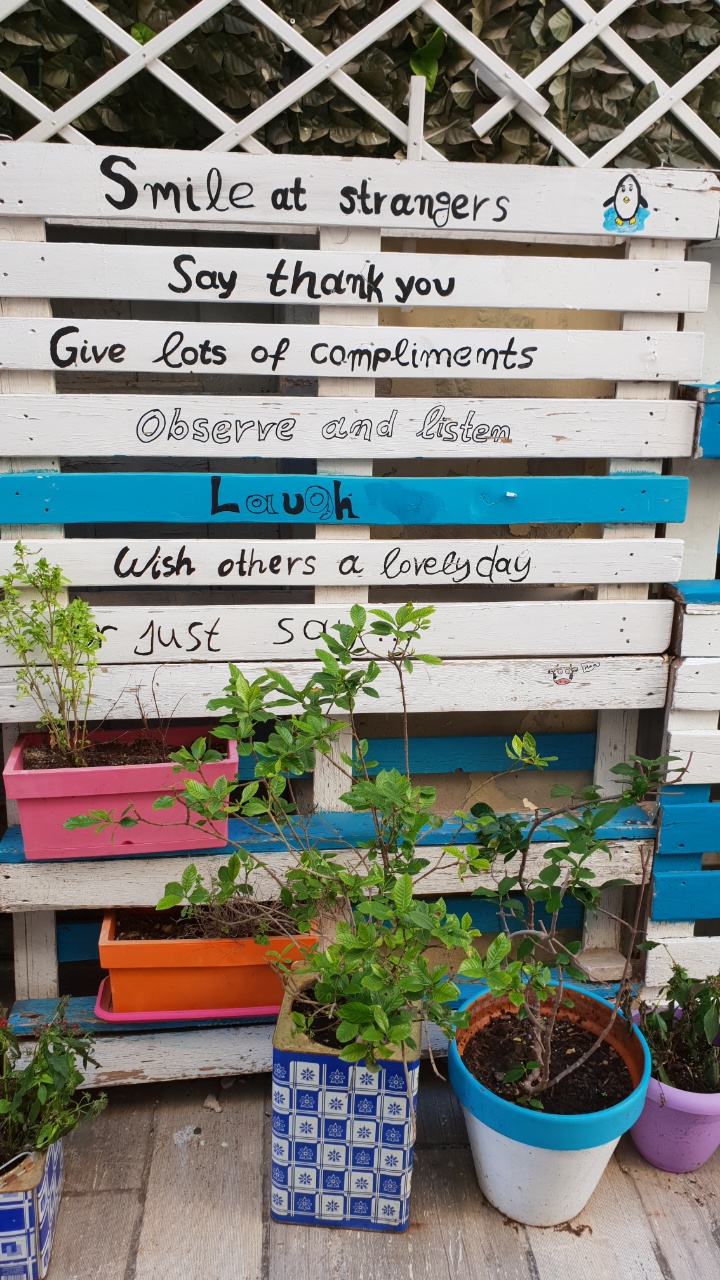 Smile at strangers
Say thank you
Give lots of compliments
Observe and listen
Laugh
Wish others a lovely day
just